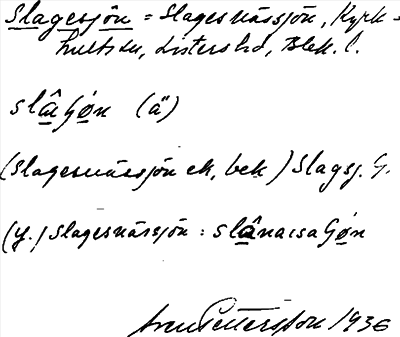 Slagesjön = Slagesnässjön, Kyrk-
hults sn, Listers hd, Blek. l.
slâɧøn (ä)
(Slagesnässjön ek, bek) Slagsj. G.
(y.) Slagesnässjön: slânæsaɧøn
Sven Pettersson 1936